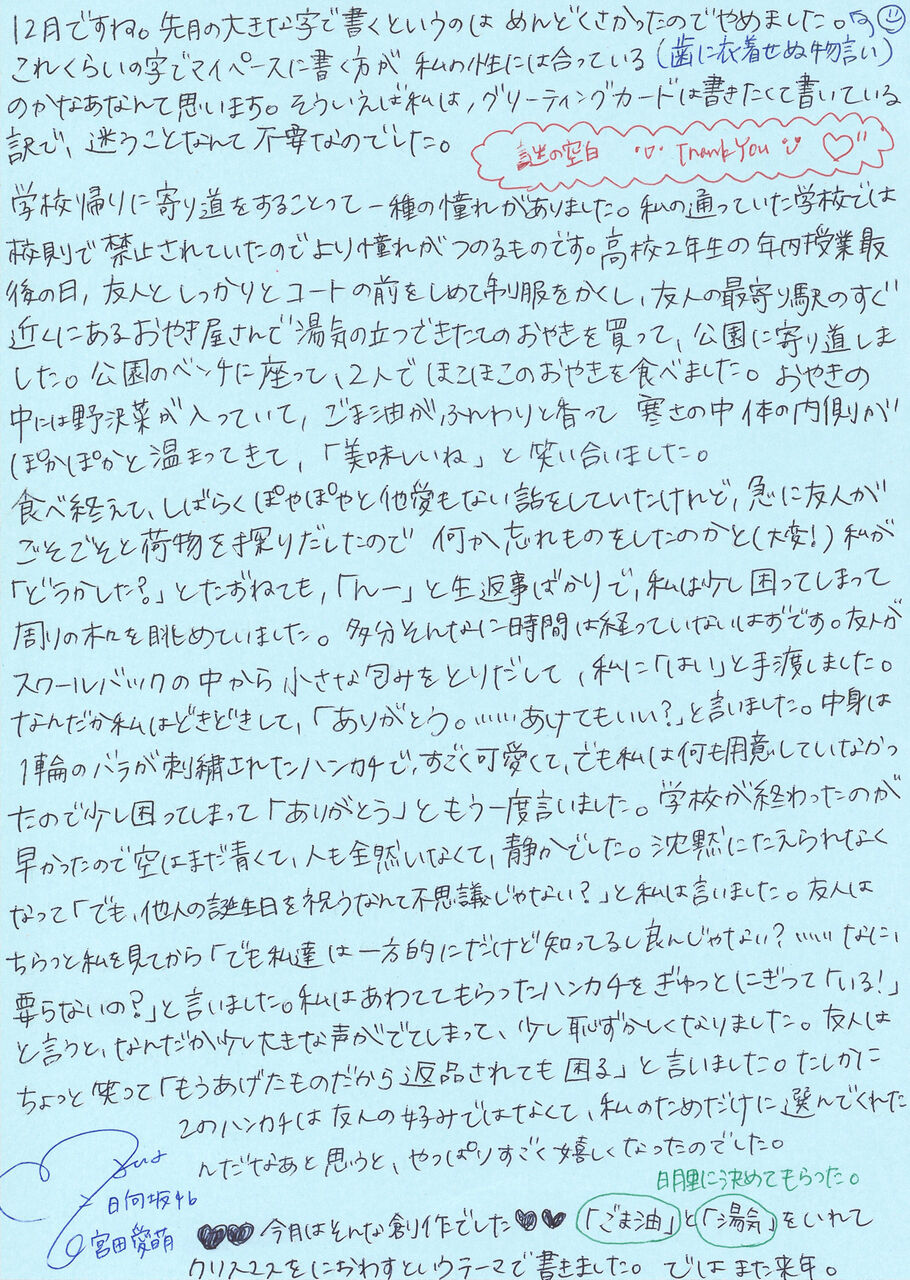 12月ですね。先月の大きな字で書くというのは めんどくさかったのでやめました。
これくらいの字でマイペースに書く方が 私の性には合っている (歯に衣着せぬ物言い)
のかなあなんて思います。そういえば私は、グリーティングカードは書きたくて書いている
訳で、迷うことなんて 不要なのでした。
謎の空白 Thank You
学校帰りに寄り道をすることって一種の憧れがありました。私の通っていた学校では
校則で禁止されていたのでより憧れがつのるものです。高校2年生の年内授業最
後の日、友人としっかりとコートの前をしめて制服をかくし、友人の最寄り駅のすぐ
近くにあるおやき屋さんで湯気の立つできたてのおやきを買って、公園に寄り道しま
した。公園のベンチに座って、2人でほこほこのおやきを食べました。おやきの
中には野沢菜が入っていて、ごま油がふんわりと香って 寒さの中 体の内側が
ぽかぽかと温まってきて、「美味しいね」と笑い合いました。
食べ終えて、しばらくぽやぽやと他愛もない話をしていたけれど、急に友人が
ごそごそと荷物を探りだしたので 何か忘れものをしたのかと(大変!)私が
「どうかした?」とたずねても、「んー」と生返事ばかりで、私は少し困ってしまって
周りの木々を眺めていました。多分そんなに時間は経っていないはずです。友人が
スクールバックの中から小さな包みをとりだして、私に「はい」と手渡しました。
なんだか私はどきどきして、「ありがとう。……あけてもいい?」と言いました。中身は
1輪のバラが刺繍されたハンカチで、すごく可愛くて、でも私は何も用意していなかっ
たので少し困ってしまって「ありがとう」ともう一度言いました。学校が終わったのが
早かったので空はまだ青くて、人も全然いなくて、静かでした。沈黙にたえられなく
なって「でも、他人の誕生日を祝うなんて不思議じゃない?」と私は言いました。友人は
ちらっと私を見てから「でも私達は一方的にだけど知ってるし良んじゃない?……なに、
要らないの?」と言いました。私はあわててもらったハンカチをぎゅっとにぎって「いる!」
と言うと、なんだか少し大きな声がでてしまって、少し恥ずかしくなりました。友人は
ちょっと笑って「もうあげたものだから返品されても困る」と言いました。たしかに
このハンカチは友人の好みではなくて、私のためだけに選んでくれた
んだなあと思うと、やっぱりすごく嬉しくなったのでした。
日向坂46
宮田愛萌
明里に決めてもらった。
今月はそんな創作でした 「ごま油」と「湯気」をいれて
クリスマスをにおわすというテーマで書きました。では また来年。